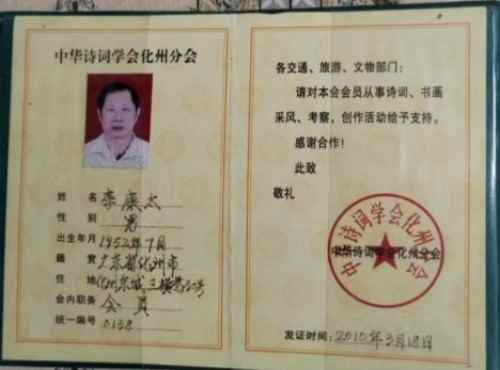 中华诗词学会化州分会
姓名 李廉太
性别 男
出生年月 1952年7月
籍贯 广东省化州市
住地 化州东城三横
会内职务 会员
统一编号 0158
各交通、旅游、文物部门：
请对本会会员从事诗词、书画
采风、考察，创作活动给予支持。
感谢合作！
此致
敬礼
中华诗词学会化州分会
中华诗词学会化州分会
发证时间：2010年3月18日